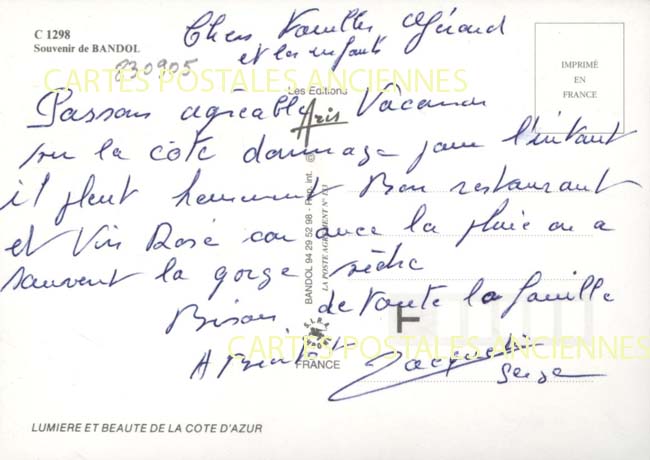 C 1298
Souvenir de BANDOL
830905
Chers Gérard
et les enfants
IMPRIMÉ
EN
FRANCE
CARTES POSTALES ANCIENNES
Les Editions
Aris
Passons agréable Vacances
sur la côte dommage pour l'instant
il pleut heureusement Bon restaurant
et Vin Rosé car avec la pluie on a
souvent la gorge sèche
Bisous de toute la famille
A Bientôt
Jacqueline
Serge
BANDOL 94 29 52 98 - Rep. int. ©
LA POSTE AGREMENT N°
F
FRANCE
CARTES POSTALES ANCIENNES
LUMIERE ET BEAUTE DE LA COTE D'AZUR